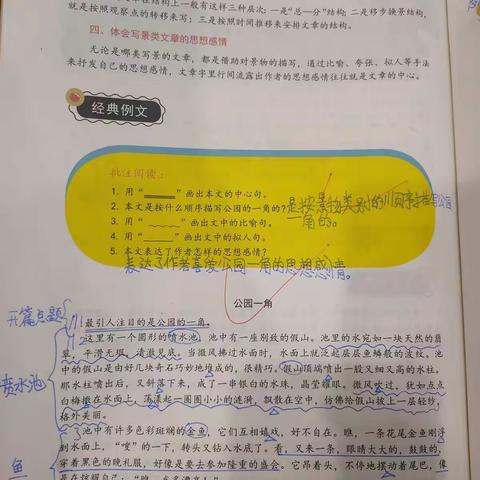 是按照观察点的转移来写；三是按照时间推移来安排文章的结构。
四、体会写景类文章的思想感情
无论是哪类写景的文章，都是借助对景物的描写，通过比喻、夸张、拟人等手法
来抒发自己的思想感情，文章字里行间流露出作者的思想感情往往就是文章的中心。
经典例文
批注阅读：
1. 用“ ”画出本文的中心句。
2. 本文是按什么顺序描写公园的一角的？是按景物类别的顺序描写公园
一角的。
3. 用“ ”画出文中的比喻句。
4. 用“ ”画出文中的拟人句。
5. 本文表达了作者怎样的思想感情？
表达了作者喜爱公园一角的思想感情。
公园一角
开篇点题
最引人注目的是公园的一角。
这里有一个圆形的喷水池。池中有一座别致的假山。池里的水宛如一块天然的翡
翠，平滑无瑕，清澈见底。当微风拂过水面时，水面上就泛起层层鱼鳞般的波纹。池
中的假山是由好几块奇石巧妙地堆成的，很精巧。假山顶端喷出一股又细又高的水柱。
喷水池
那水柱喷出后，又斜落下来，成了一串银白的水珠，晶莹耀眼。微风吹过，犹如点点
白梅撒在水面上，荡漾起一圈圈小小的涟漪，飘散在空中，仿佛给假山披上一层轻纱，
格外美丽。
池中有许多色彩斑斓的金鱼，它们互相嬉戏，好不自在。瞧，一条花尾金鱼刚浮
到水面上，“嗖”的一下，转头又钻入水底了。看，又来一条，眼睛大大的，鼓鼓的，
鱼
穿着黑色的晚礼服，好像是要去参加隆重的盛会。它昂着头，不停地摆动着尾巴，像